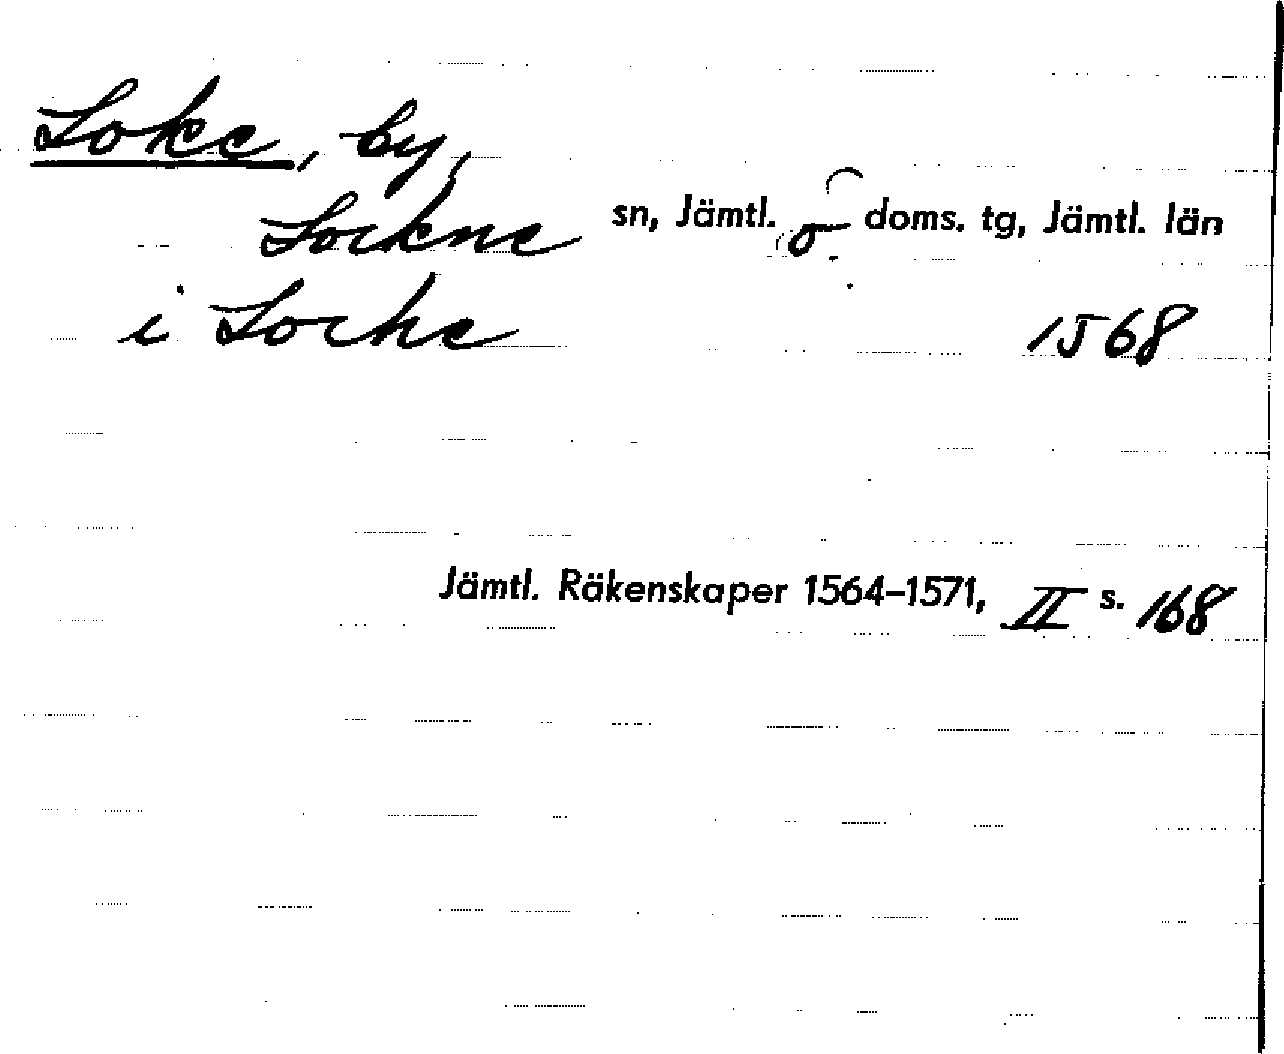 Loke, by,
Lockne sn, Jämtl. ö doms. tg, Jämtl. län
i Locke 1568
Jämtl. Räkenskaper 1564–1571, II s. 168